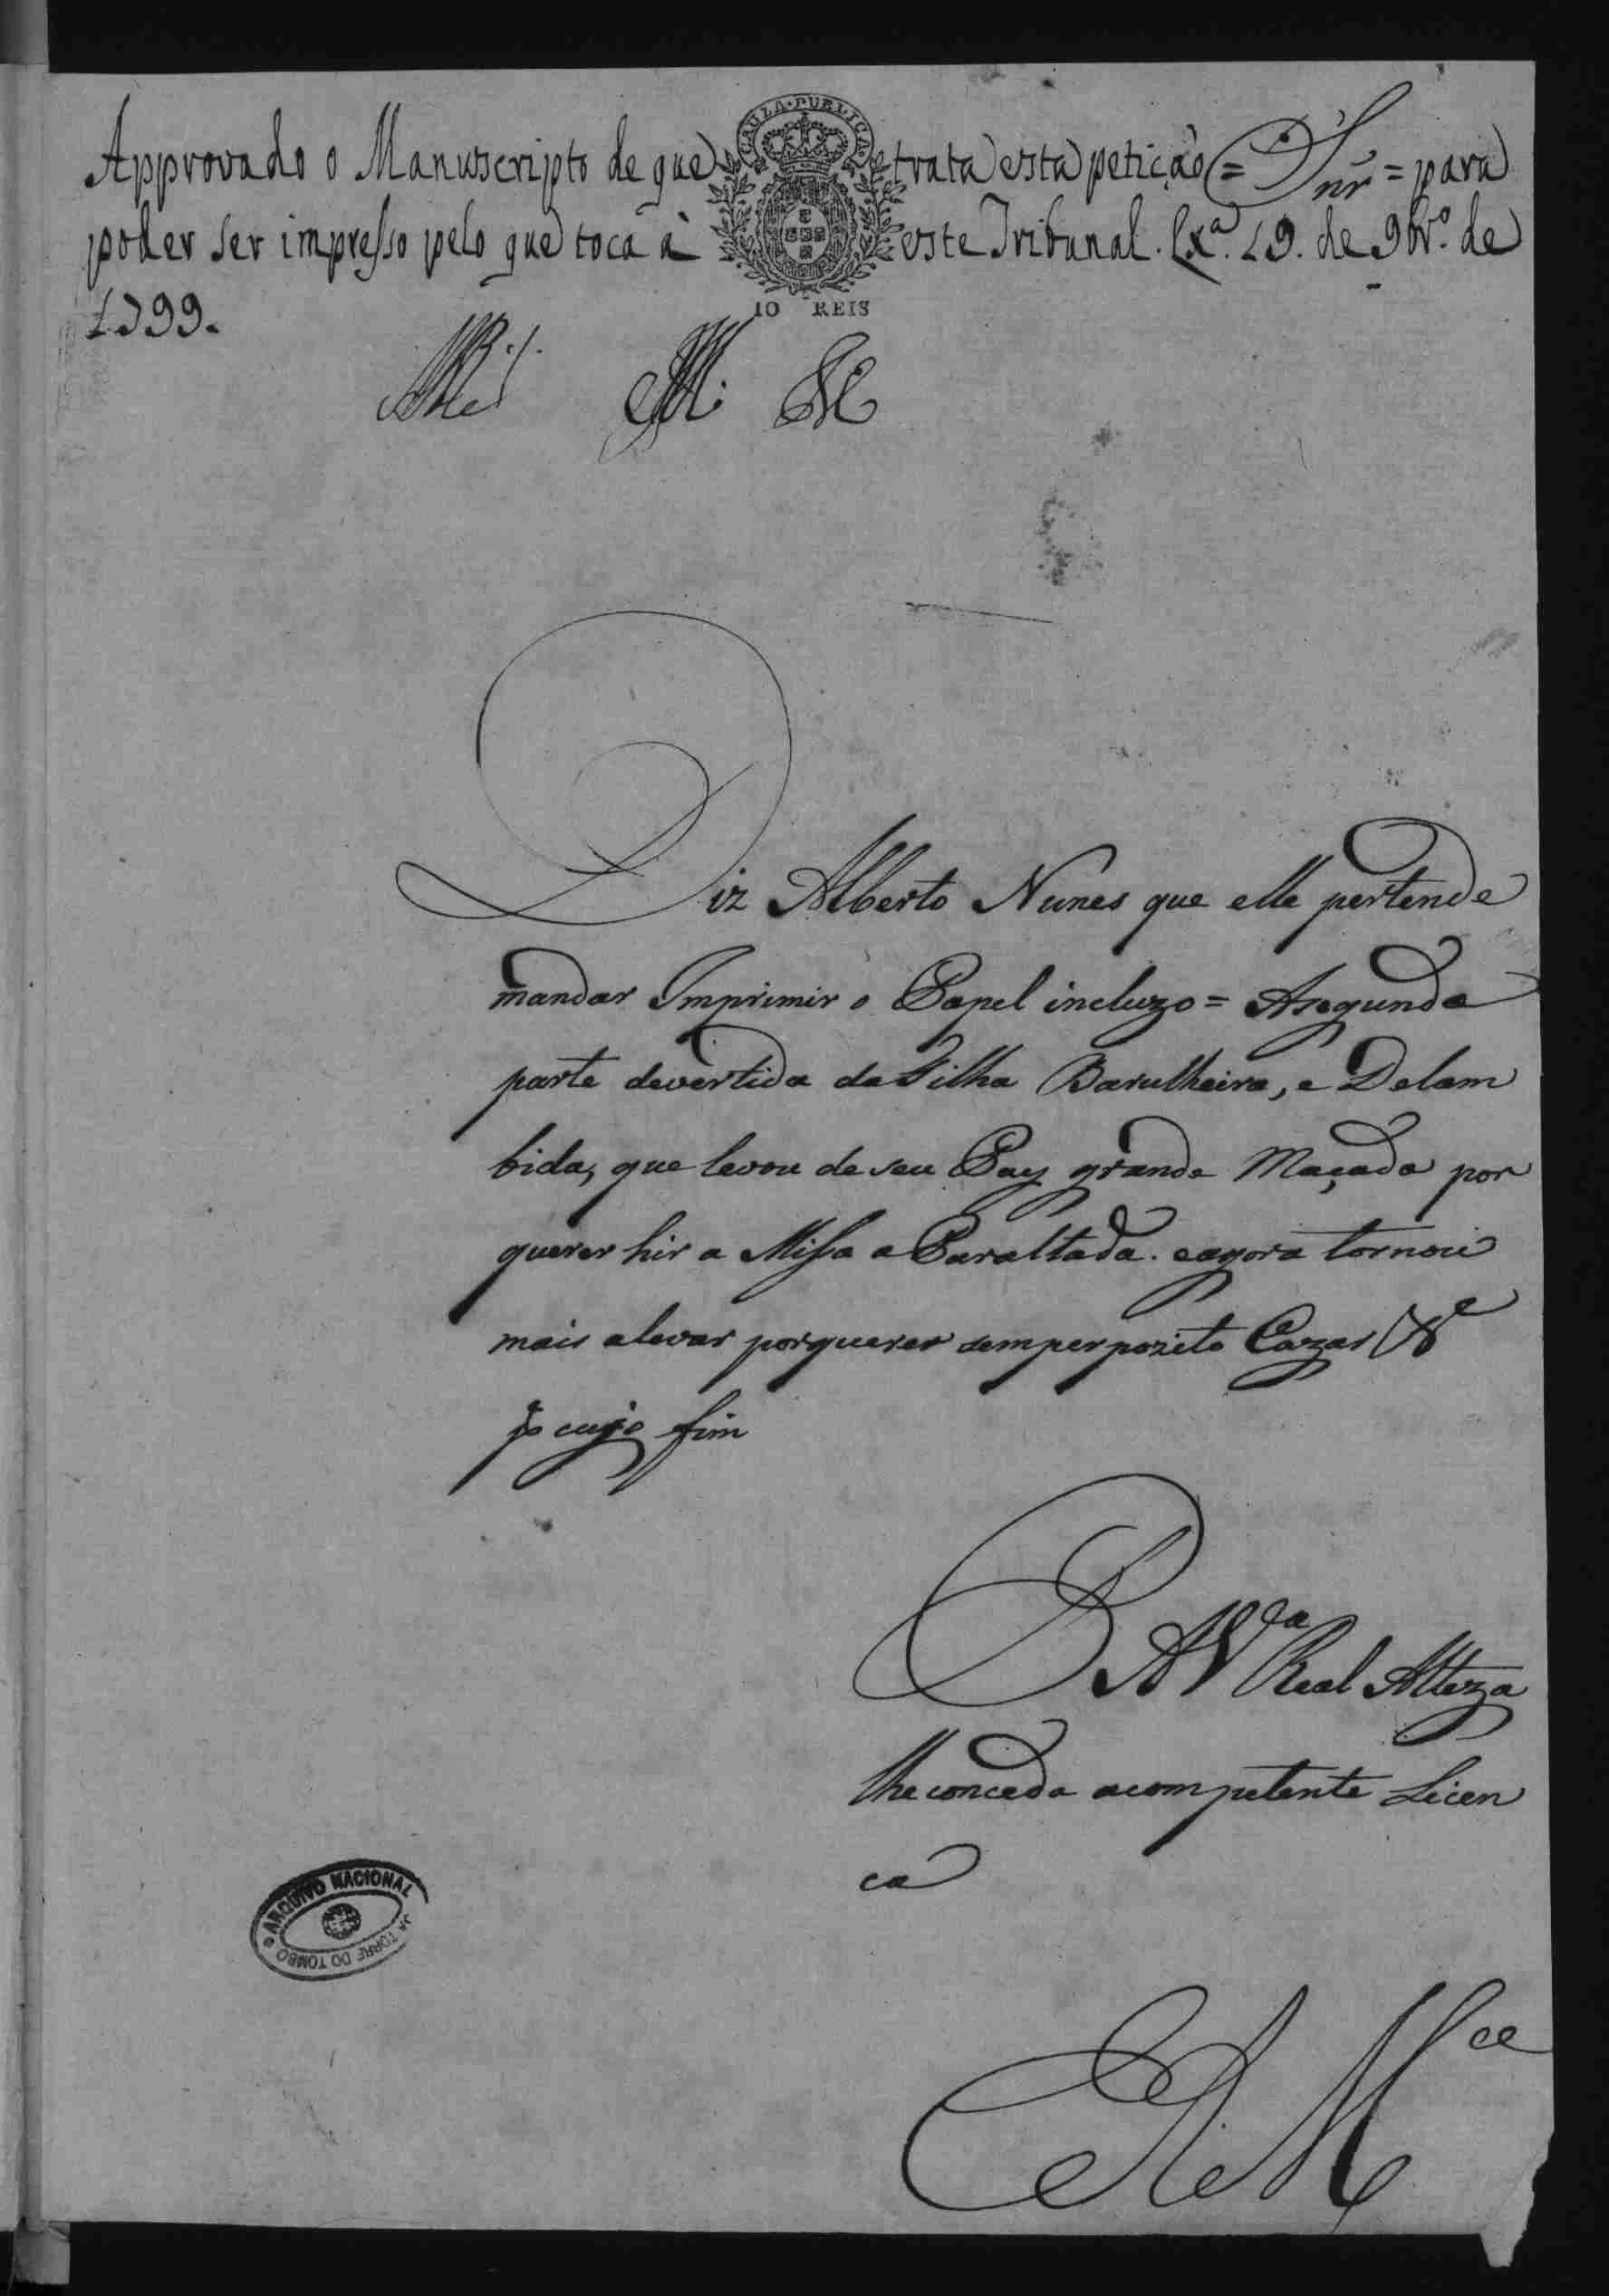 CAUZA PUBLICA
Approvado o Manuscripto de que trata esta petição = Snr̃ = para
poder ser impresso pelo que toca à este Tribunal. Lx.ª 19. de 9br.º de
1799.
10 REIS
Diz Alberto Nunes que elle pertende
mandar Imprimir o Papel incluzo = Asegunda
parte devertida da Filha Barulheira, e Delam
bida, que levou de seu Pay grande Maçada por
querer hir a Missa a Paraltada. eagora tornou
mais alevar porquerer semperpozito Cazar &ª
Pª cujo fim
P A Vª Real Alteza
lheconceda acompetente Licen
ca
ARQUIVO NACIONAL
DA TORRE DO TOMBO
E R Mce